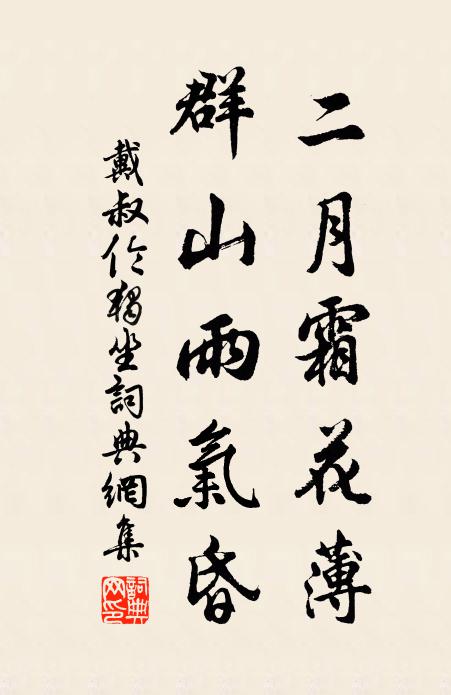 二月霜花薄
群山雨氣昏
戴叔伦獨坐詞典網集
詞典网印